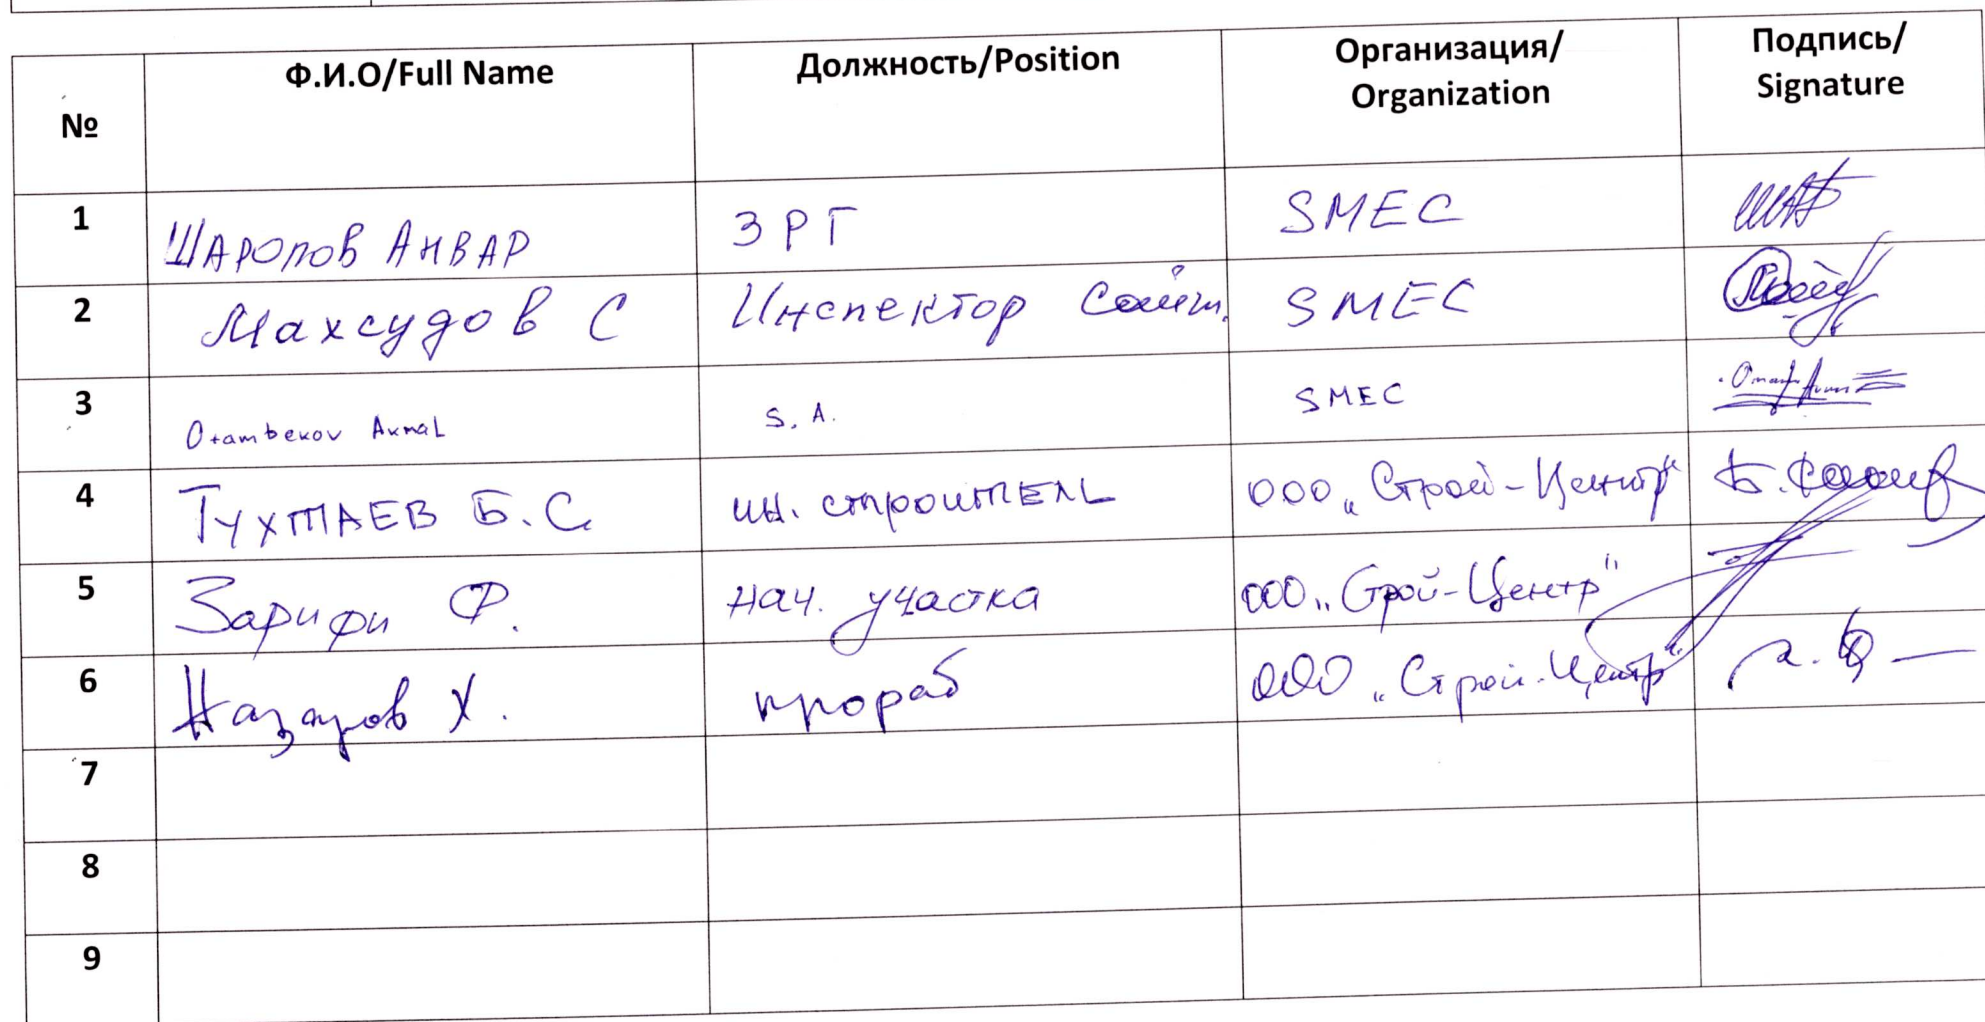 № Ф.И.О/Full Name Должность/Position Организация/ Подпись/
Organization Signature
1 Шаропов Анвар ЗРГ SMEC
2 Махсудов С Инспектор Сайт. SMEC
3 Otambekov Akmal S. A. SMEC
4 Тухтаев Б.С. ин. строитель ООО „Строй-Центр"
5 Зарифи Ф. нач. участка ООО „Строй-Центр"
6 Назаров Х. прораб ООО „Строй-Центр"
7
8
9